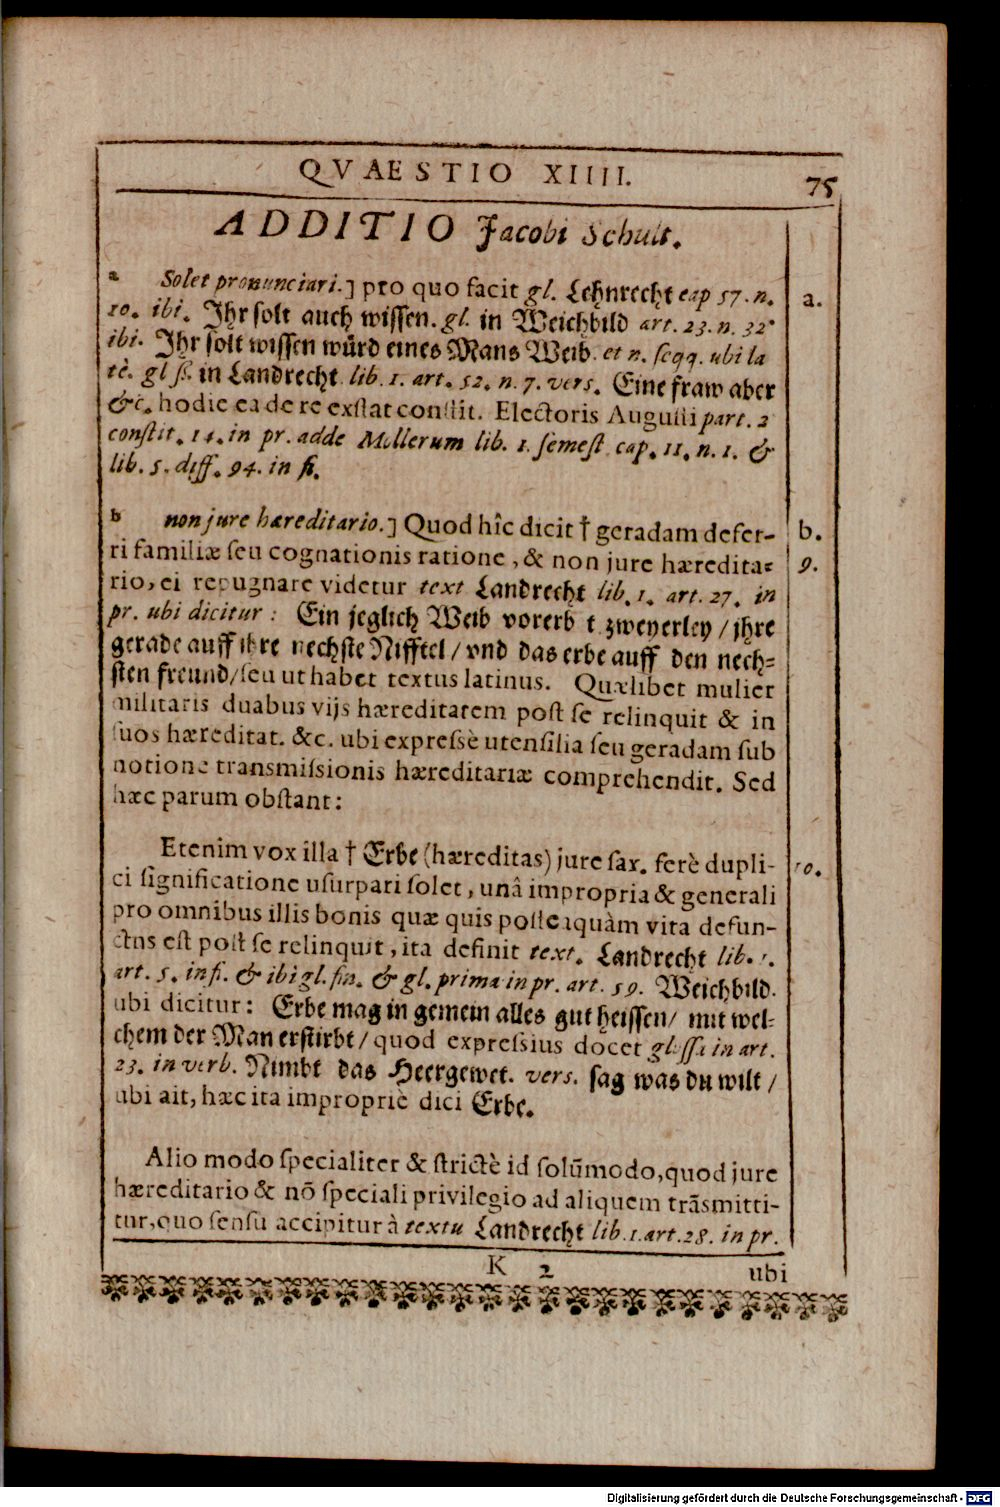 QVAESTIO XIIII.
75
ADDITIO Jacobi Schult.
a Solet pronunciari.] pro quo facit gl. Lehnrecht cap 57. n.
a.
10. ibi. Ihr solt auch wissen. gl. in Weichbild art. 23. n. 32.
ibi. Ihr solt wissen wůrd eines Mans Weib. et n. seqq. ubi la
tè. gl ſi. in Landrecht lib. 1. art. 52. n. 7. vers. Eine fraw aber
&c. hodie ea de re exſtat conſtit. Electoris Auguſti part. 2
conſtit. 14. in pr. adde Mollerum lib. 1. ſemeſt cap. 11. n. 1. &
lib. 5. diff. 94. in fi.
b non jure hæreditario.] Quod hîc dicit † geradam defer-
b.
ri familiæ ſeu cognationis ratione, & non jure hæredita-
9.
rio, ei repugnare videtur text Landrecht lib. 1. art. 27. in
pr. ubi dicitur: Ein jeglich Weib vorerb t zweyerley / jhre
gerade auff ihre nechſte Nifftel / vnd das erbe auff den nech-
ſten freund/ſeu ut habet textus latinus. Quælibet mulier
militaris duabus vijs hæreditatem poſt ſe relinquit & in
ſuos hæreditat. &c. ubi expreſsè utenſilia ſeu geradam ſub
notione transmiſsionis hæreditariæ comprehendit. Sed
hæc parum obſtant:
Etenim vox illa † Erbe (hæreditas) jure ſax. ferè dupli-
10.
ci ſignificatione uſurpari ſolet, unâ impropria & generali
pro omnibus illis bonis quæ quis poſteaquàm vita defun-
ctus eſt poſt ſe relinquit, ita definit text. Landrecht lib. 1.
art. 5. in fi. & ibi gl. fin. & gl. prima in pr. art. 59. Weichbild.
ubi dicitur: Erbe mag in gemein alles gut heiſſen/ mit wel-
chem der Man erſtirbt / quod expreſsius docet gloſſa in art.
23. in verb. Nimbt das Heergewet. vers. ſag was du wilt /
ubi ait, hæc ita impropriè dici Erbe.
Alio modo ſpecialiter & ſtrictè id ſolũmodo, quod jure
hæreditario & nõ ſpeciali privilegio ad aliquem trãsmitti-
tur, quo ſenſu accipitur à textu Landrecht lib. 1. art. 28. in pr.
K 2
ubi
Digitalisierung gefördert durch die Deutsche Forschungsgemeinschaft - DFG